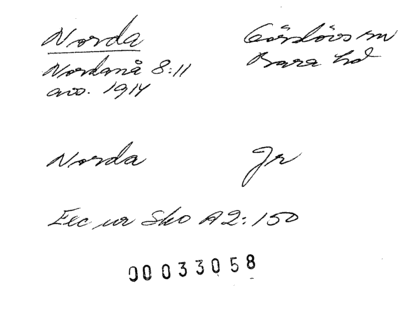 Norda Görslövs sn
Nordanå 8:11 Bara hd
avs. 1914
Norda Jr
Exc ur Sko A2:150
00033058